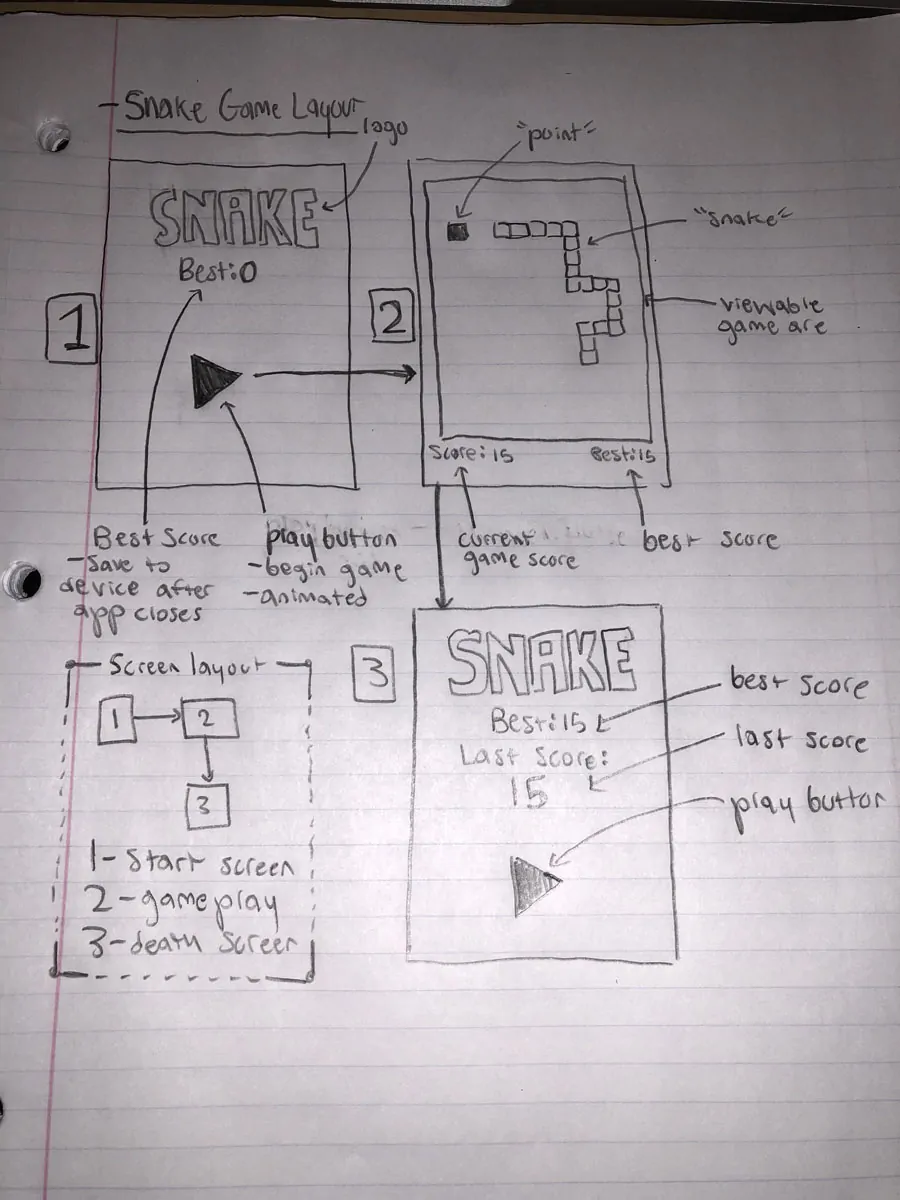 - Snake Game Layout
logo
SNAKE
Best:0
1
Best Score
-save to
device after
app closes
play button
-begin game
-animated
"point"
"snake"
viewable
game are
2
Score:15
Best:15
current
game score
best score
Screen layout
1
2
3
1-Start screen
2-gameplay
3-death screen
3
SNAKE
Best:15
Last Score:
15
best score
last score
play button